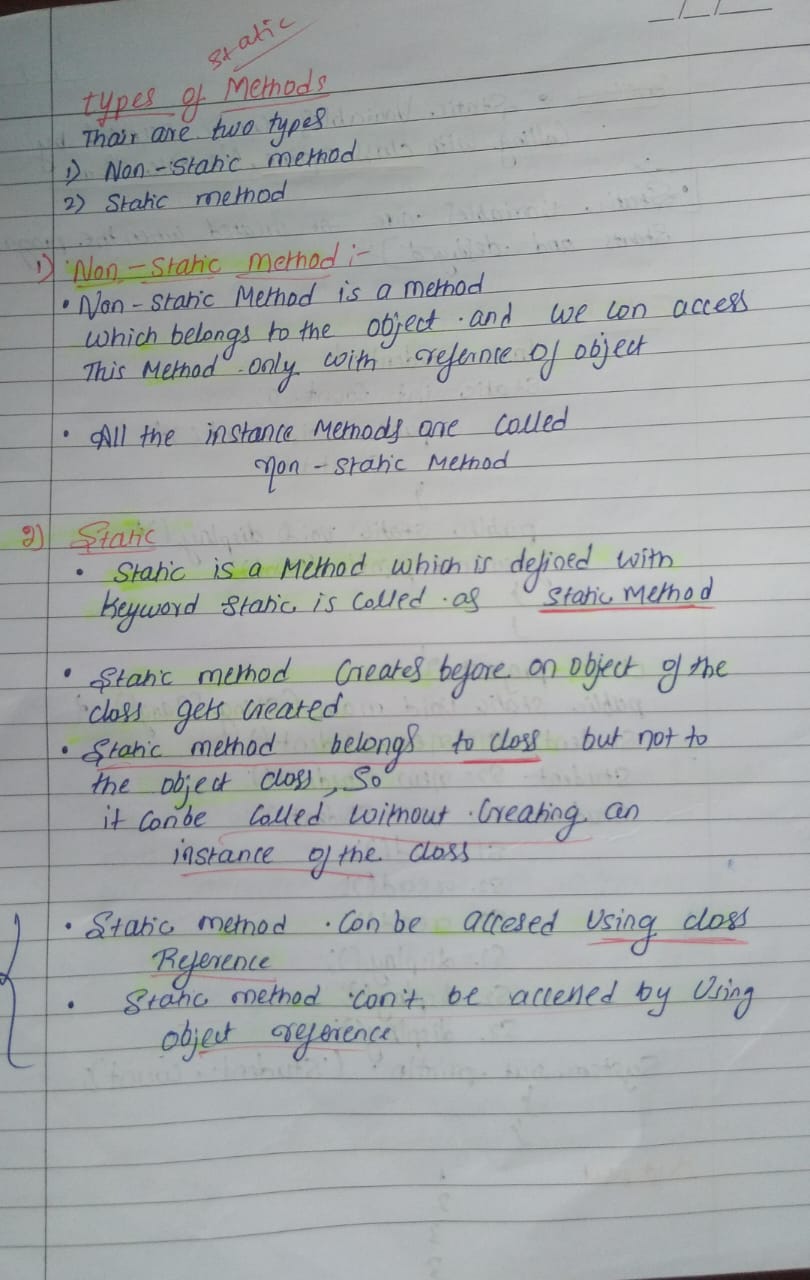 static
types of Methods
Thair are two types
1) Non-Static method
2) Static method
1) Non-Static Method :-
• Non-Static Method is a method
which belongs to the object. and we can access
This Method only with refernce of object
• All the instance Methods are called
non-static Method
2) Static
• Static is a Method which is defined with
Keyword Static is called as Static Method
• Static method Creates before an object of the
class gets created
• Static method belongs to class but not to
the object class, So
it can be Called without Creating an
instance of the class
• Static method can be accesed Using class
Reference
• Static method can't be accened by Using
object reference